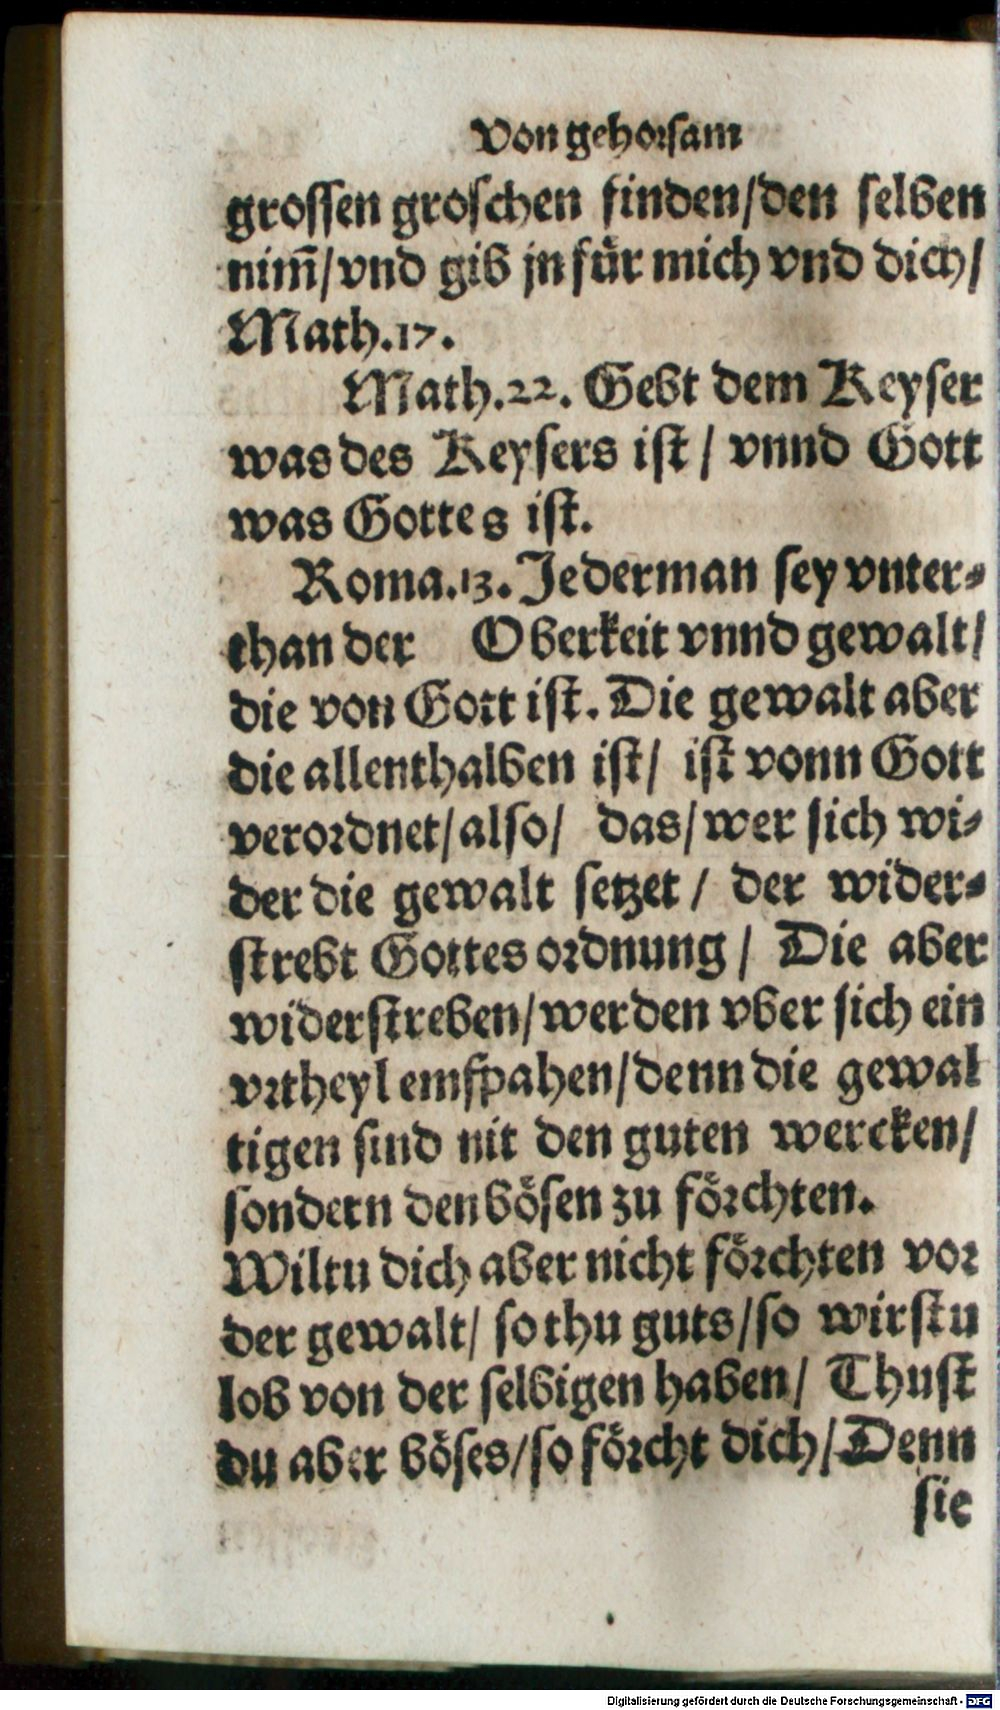 Von gehorsam
grossen groschen finden/den selben
nim̄/vnd gib jn für mich vnd dich/
Math.17.
Math.22. Gebt dem Keyser
was des Keysers ist/ vnnd Gott
was Gottes ist.
Roma.13. Jederman sey vnter⸗
than der Oberkeit vnnd gewalt/
die von Gott ist. Die gewalt aber
die allenthalben ist/ ist vonn Gott
verordnet/also/ das/wer sich wi⸗
der die gewalt setzet/ der wider⸗
strebt Gottes ordnung/ Die aber
widerstreben/werden vber sich ein
vrtheyl emfpahen/denn die gewal
tigen sind nit den guten wercken/
sondern den bösen zu förchten.
Wiltu dich aber nicht förchten vor
der gewalt/ so thu guts/so wirstu
lob von der selbigen haben/ Thust
du aber böses/so förcht dich/Denn
sie
Digitalisierung gefördert durch die Deutsche Forschungsgemeinschaft - DFG